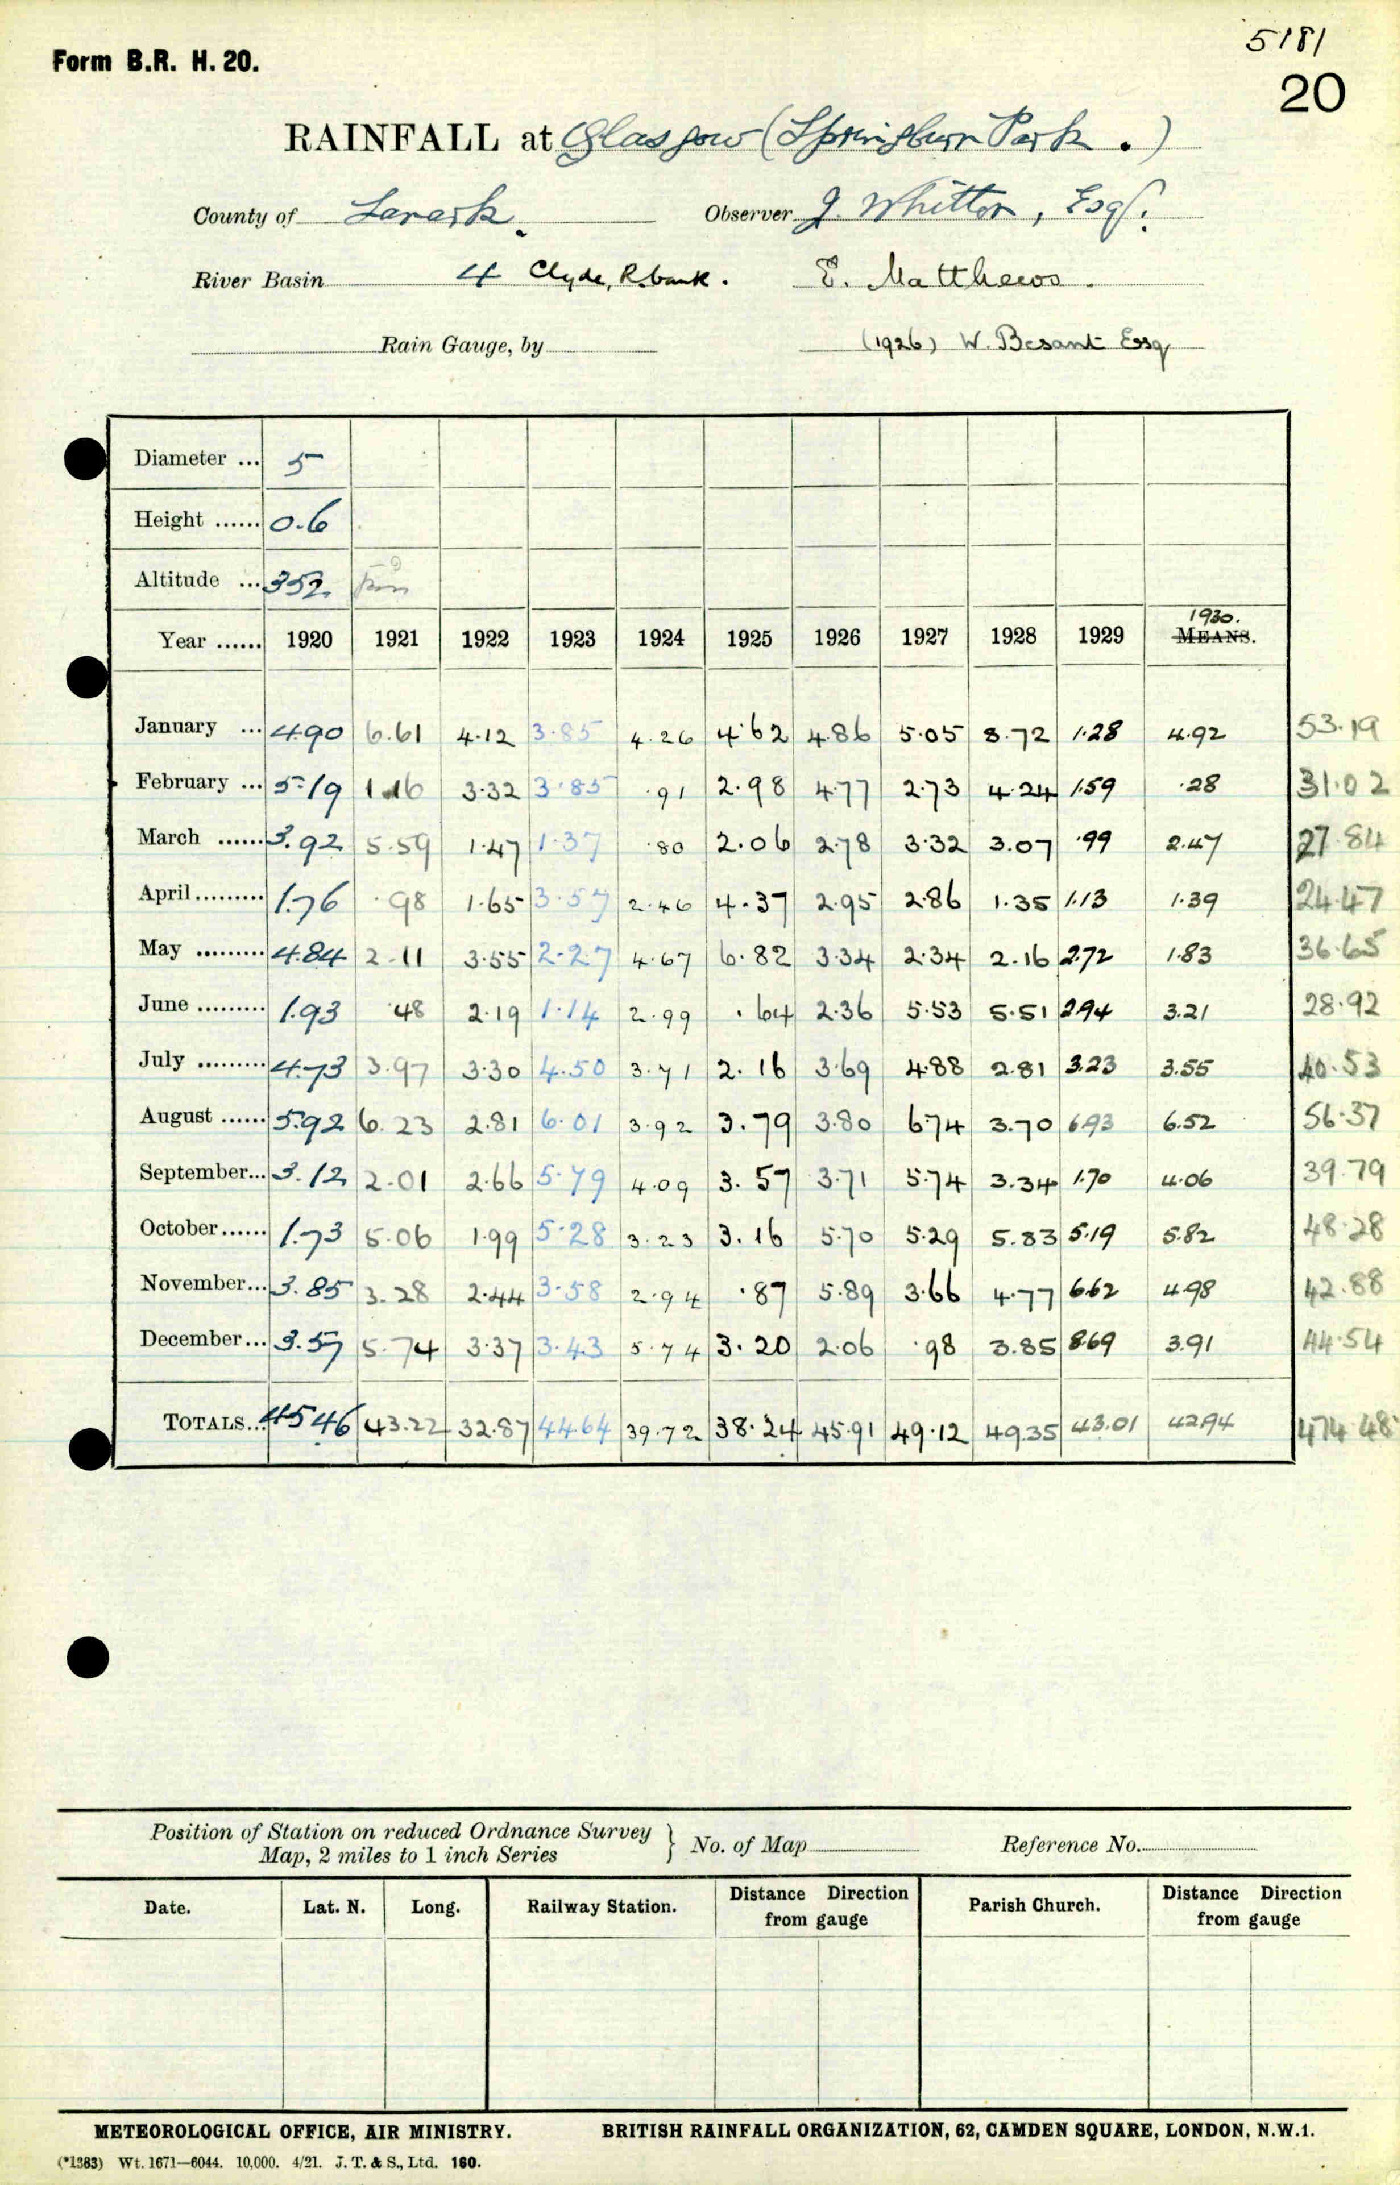 5181
Form B.R. H. 20.
20
RAINFALL at Glasgow (Springburn Park.)
County of Lanark. Observer J. Whitton, Esq.
River Basin 4 Clyde, R. bank. E. Matthews.
Rain Gauge, by (1926) W. Besant Esq
Diameter ... 5
Height ...... 0.6
Altitude ... 352
Year ...... 1920 1921 1922 1923 1924 1925 1926 1927 1928 1929 1930. MEANS.
January ... 4.90 6.61 4.12 3.85 4.26 4.62 4.86 5.05 8.72 1.28 4.92 53.19
February ... 5.19 1.16 3.32 3.85 .91 2.98 4.77 2.73 4.24 1.59 .28 31.02
March ...... 3.92 5.59 1.47 1.37 .80 2.06 2.78 3.32 3.07 .99 2.47 27.84
April ......... 1.76 .98 1.65 3.57 2.46 4.37 2.95 2.86 1.35 1.13 1.39 24.47
May ......... 4.84 2.11 3.55 2.27 4.67 6.82 3.34 2.34 2.16 2.72 1.83 36.65
June ......... 1.93 .48 2.19 1.14 2.99 .64 2.36 5.53 5.51 2.94 3.21 28.92
July ......... 4.73 3.97 3.30 4.50 3.71 2.16 3.69 4.88 2.81 3.23 3.55 40.53
August ...... 5.92 6.23 2.81 6.01 3.92 3.79 3.80 6.74 3.70 6.93 6.52 56.37
September... 3.12 2.01 2.66 5.79 4.09 3.57 3.71 5.74 3.34 1.70 4.06 39.79
October...... 1.73 5.06 1.99 5.28 3.23 3.16 5.70 5.29 5.83 5.19 5.82 48.28
November... 3.85 3.28 2.44 3.58 2.94 .87 5.89 3.66 4.77 6.62 4.98 42.88
December... 3.57 5.74 3.37 3.43 5.74 3.20 2.06 .98 3.85 8.69 3.91 44.54
TOTALS... 45.46 43.22 32.87 44.64 39.72 38.24 45.91 49.12 49.35 43.01 42.94 474.48
Position of Station on reduced Ordnance Survey
Map, 2 miles to 1 inch Series } No. of Map Reference No.
Date. Lat. N. Long. Railway Station. Distance Direction from gauge Parish Church. Distance Direction from gauge
METEOROLOGICAL OFFICE, AIR MINISTRY. BRITISH RAINFALL ORGANIZATION, 62, CAMDEN SQUARE, LONDON, N.W.1.
(*1383) Wt. 1671—6044. 10,000. 4/21. J. T. & S., Ltd. 160.